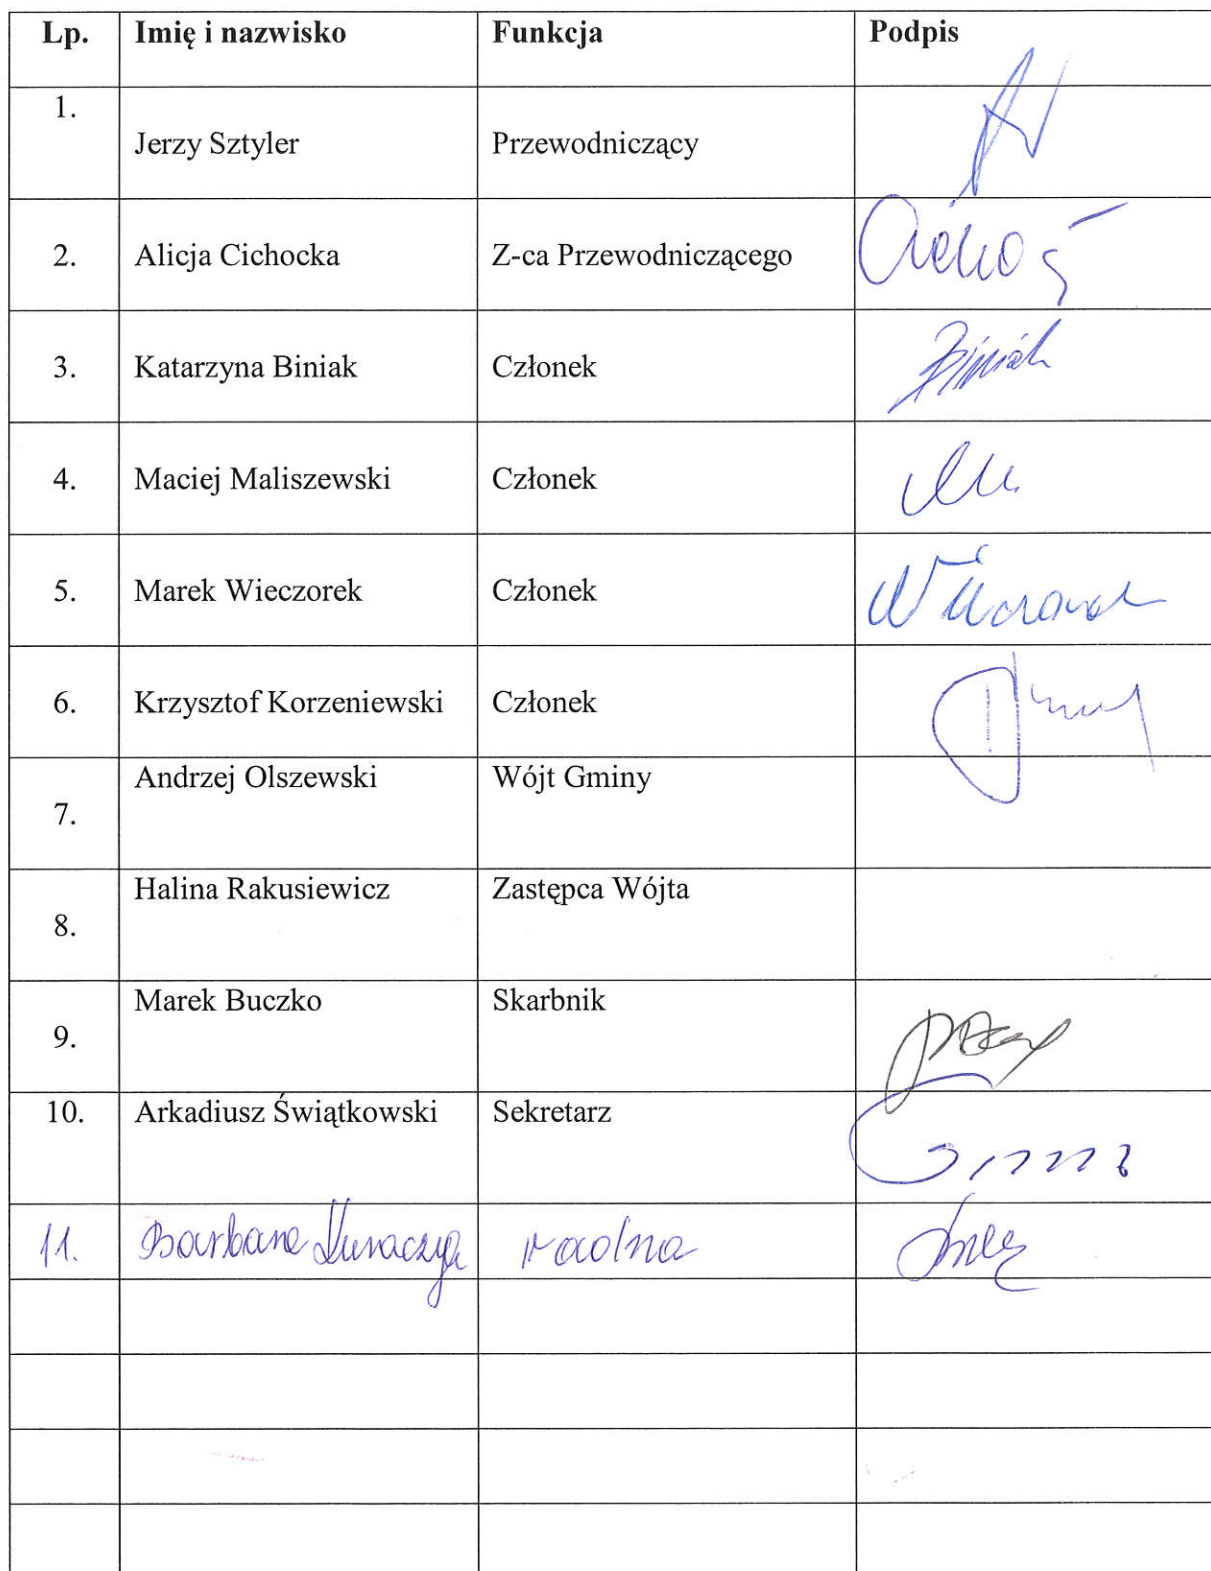 Lp. Imię i nazwisko Funkcja Podpis
1. Jerzy Sztyler Przewodniczący
2. Alicja Cichocka Z-ca Przewodniczącego
3. Katarzyna Biniak Członek
4. Maciej Maliszewski Członek
5. Marek Wieczorek Członek
6. Krzysztof Korzeniewski Członek
7. Andrzej Olszewski Wójt Gminy
8. Halina Rakusiewicz Zastępca Wójta
9. Marek Buczko Skarbnik
10. Arkadiusz Świątkowski Sekretarz
11. Barbara radna